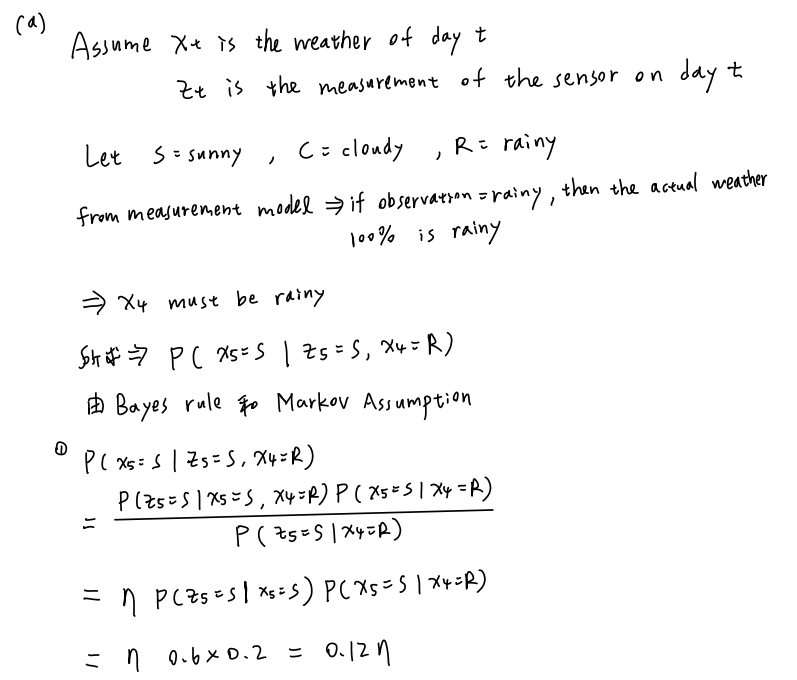 (a)
Assume Xt is the weather of day t
Zt is the measurement of the sensor on day t
Let S = sunny , C = cloudy , R = rainy
from measurement model ⇒ if observation = rainy, then the actual weather
100% is rainy
⇒ X4 must be rainy
所求 ⇒ P( X5=S | Z5=S, X4=R)
由 Bayes rule 和 Markov Assumption
① P( X5=S | Z5=S, X4=R)
= P(Z5=S | X5=S, X4=R) P( X5=S | X4=R)
P( Z5=S | X4=R)
= η P(Z5=S | X5=S) P(X5=S | X4=R)
= η 0.6×0.2 = 0.12η